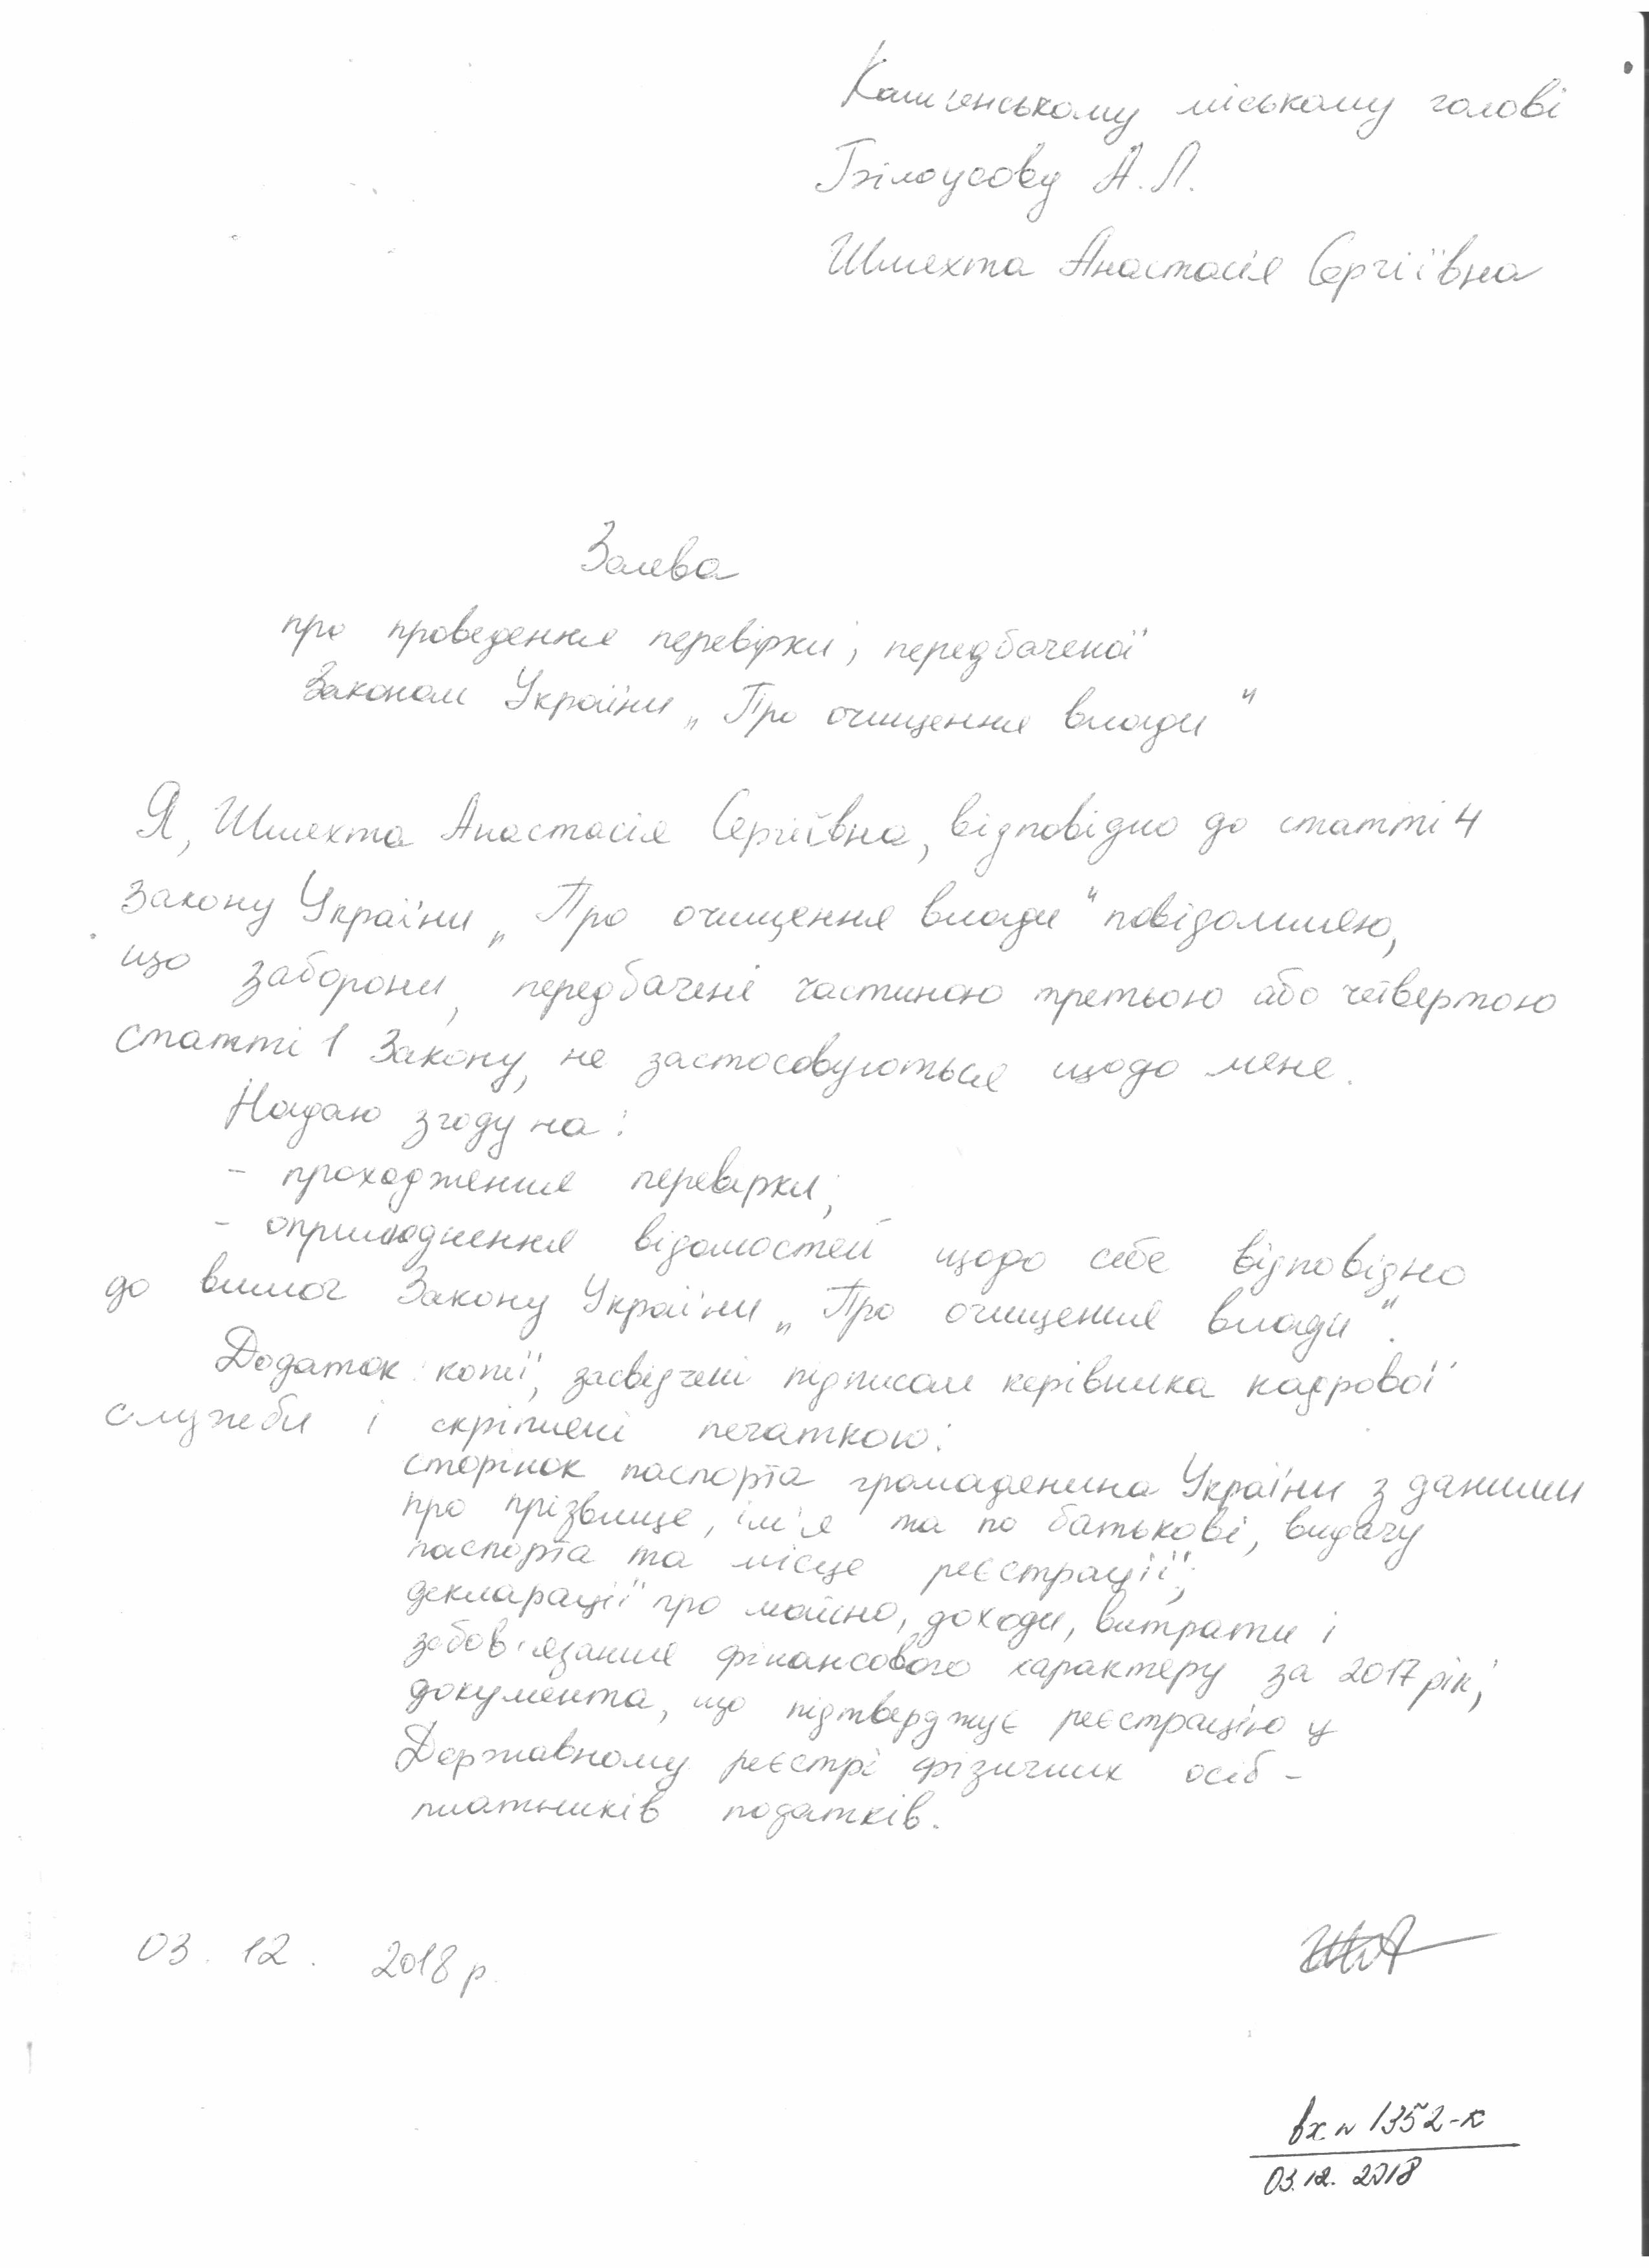 Кам'янському міському голові
Білоусову А.Л.
Шляхта Анастасія Сергіївна
Заява
про проведення перевірки, передбаченої
Законом України „Про очищення влади"
Я, Шляхта Анастасія Сергіївна, відповідно до статті 4
Закону України „Про очищення влади" повідомляю,
що заборони, передбачені частиною третьою або четвертою
статті 1 Закону, не застосовуються щодо мене.
Надаю згоду на:
- проходження перевірки;
- оприлюднення відомостей щодо себе відповідно
до вимог Закону України „Про очищення влади".
Додаток: копії, засвідчені підписом керівника кадрової
служби і скріплені печаткою:
сторінок паспорта громадянина України з даними
про прізвище, ім'я та по батькові, видачу
паспорта та місце реєстрації;
декларації про майно, доходи, витрати і
зобов'язання фінансового характеру за 2017 рік;
документа, що підтверджує реєстрацію у
Державному реєстрі фізичних осіб -
платників податків.
03. 12. 2018 р.
вх. № 1352-к
03.12. 2018